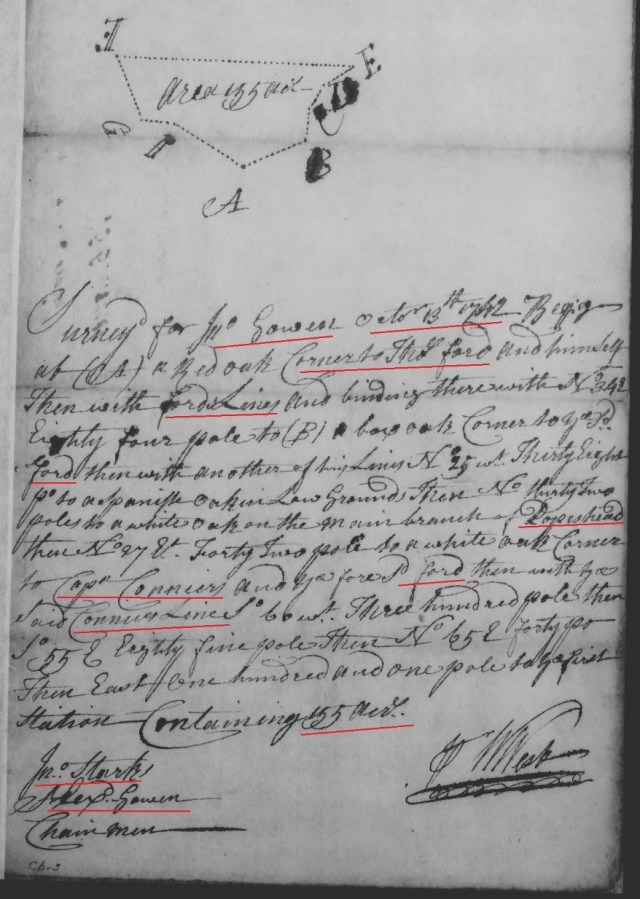 F
E
Area 155 acr
D
C
G
B
A
Survey'd for Jno. Gowen Octor. 13th 1742 Begig
at (A) a Red oak Corner to Thos. ford and himself
Then with fords Lines and binding therewith No.
Eighty four pole to (B) a box oak Corner to ye Sd.
ford then with another of his Lines No. 25 wt. Thirty Eight
po to a Spanish oak in Low Grounds Then No thirty Two
poles to a white oak on the main branch of Popeshead
then No 27 Et. Forty Two pole to a white oak Corner
to Capn Conniers and ye fore Sd ford then with ye
Said Conniers Line So. 60 wt. Three hundred pole then
So 55 E Eighty five pole Then No 65 E forty po
Then East one hundred and one pole to ye first
Station Containing 155 acrs.
Jno. Starks
Alexr. Gowen
Chain men
West
C6-3